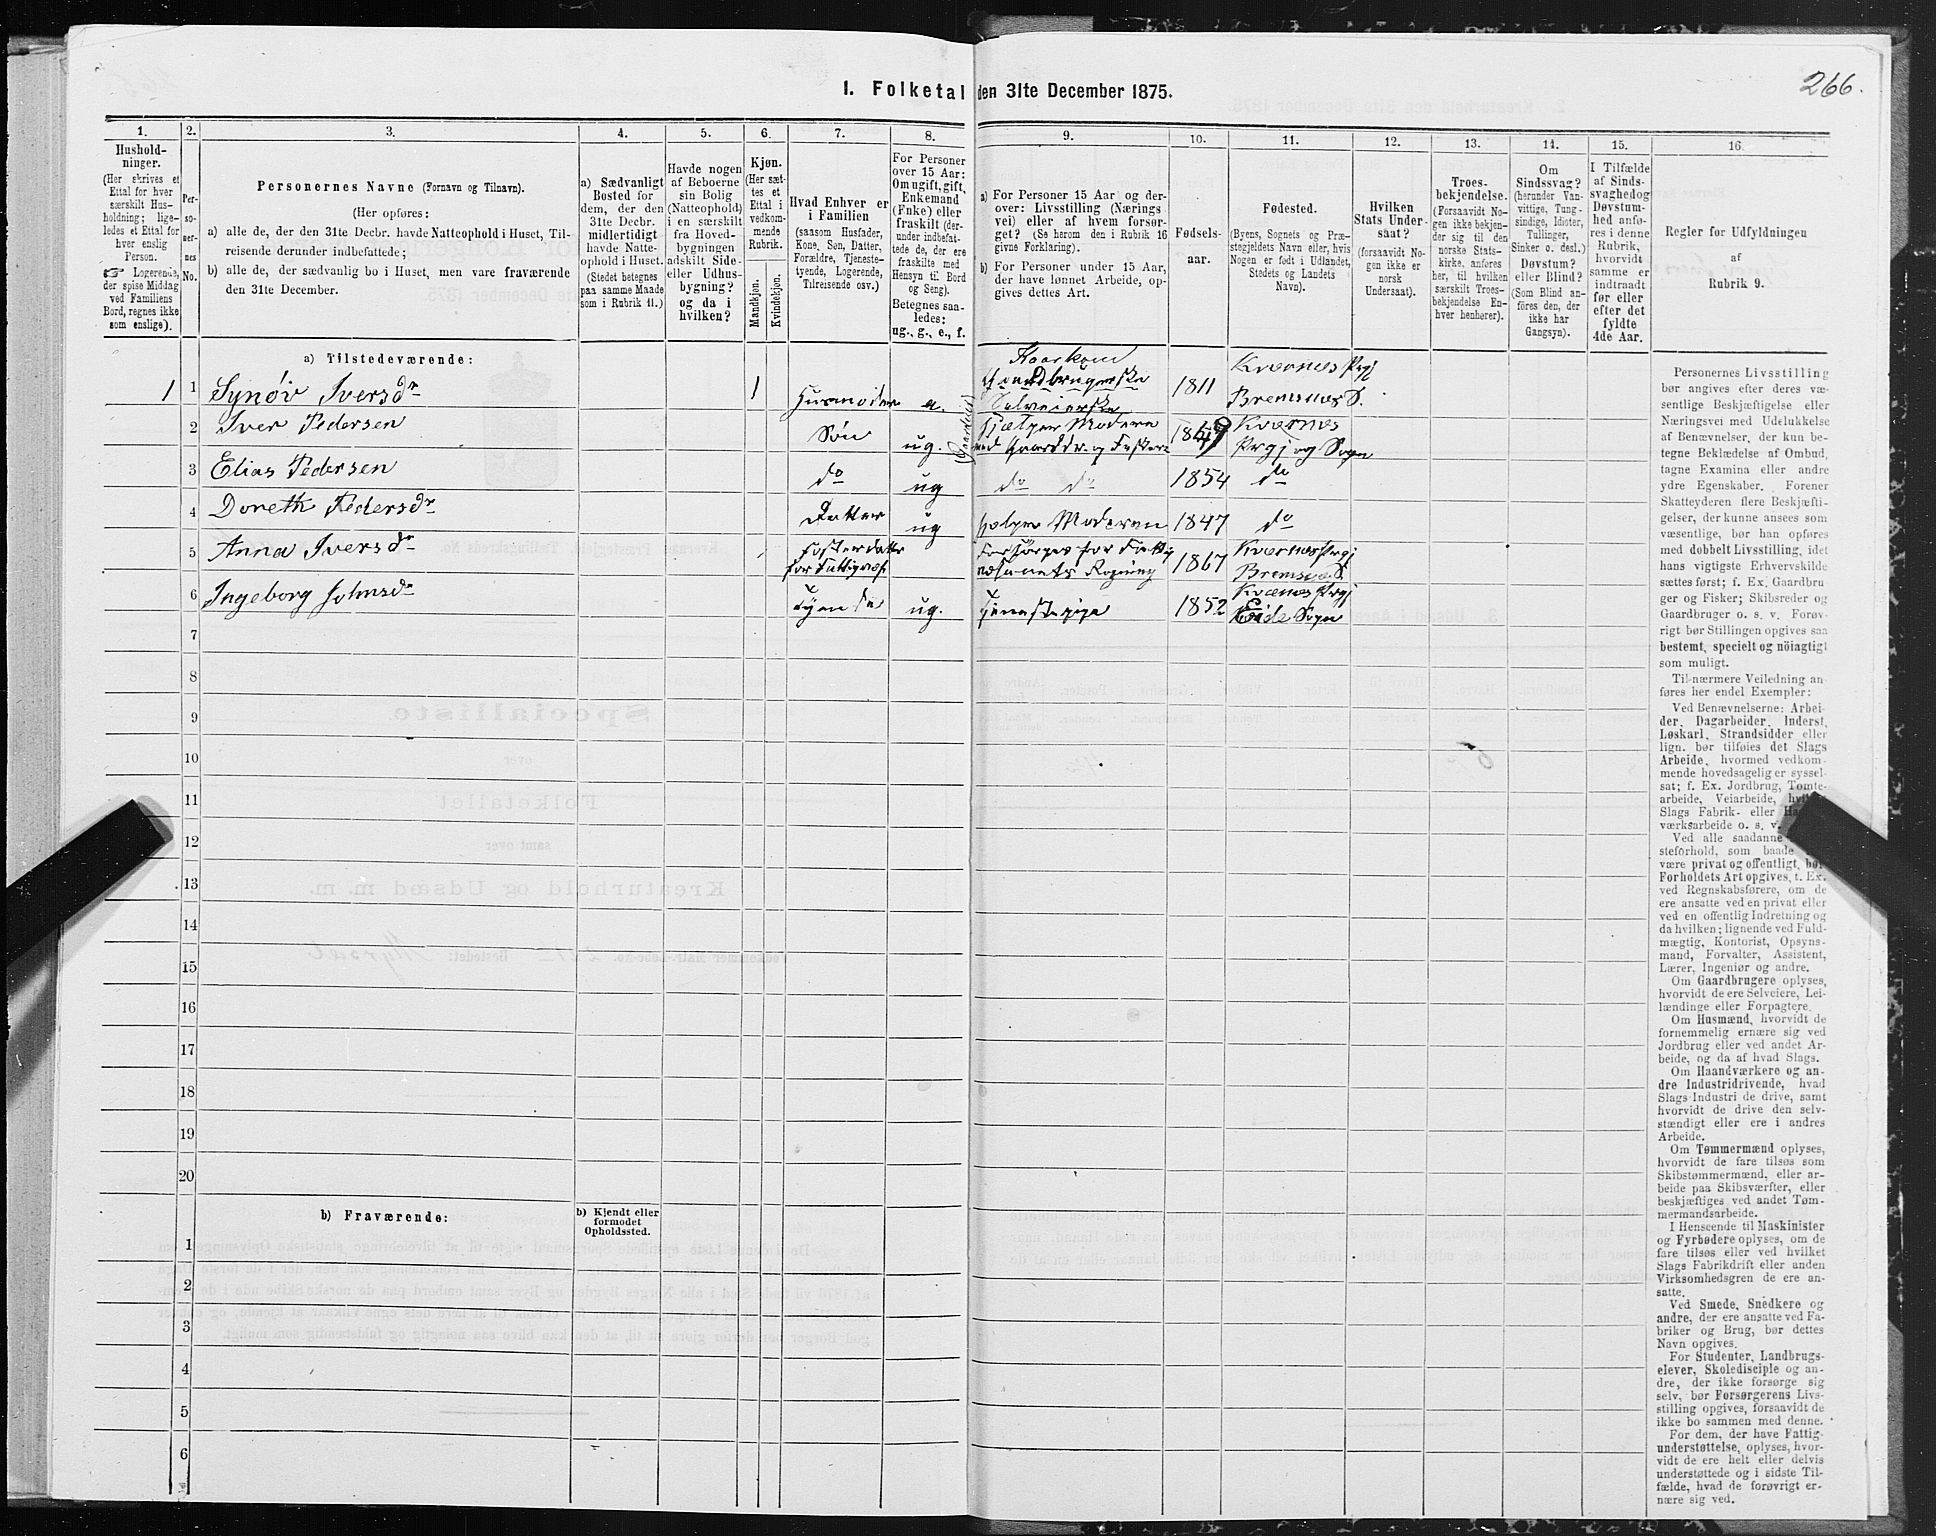 266.
1. Folketal den 31te December 1875.
1. 2. 3. 4. 5. 6. 7. 8. 9. 10. 11. 12. 13. 14. 15. 16.
Hushold-
ninger.
(Her skrives et
Ettal for hver
særskilt Hus-
holdning; lige-
ledes et Ettal for
hver enslig
Person.
☞ Logerende,
der spise Middag
ved Familiens
Bord, regnes ikke
som enslige).
Per-
so-
ner-
nes
No.
Personernes Navne (Fornavn og Tilnavn).
(Her opføres:
a) alle de, der den 31te Decbr. havde Natteophold i Huset, Til-
reisende derunder indbefattede;
b) alle de, der sædvanlig bo i Huset, men vare fraværende
den 31te December.
a) Sædvanligt
Bosted for
dem, der den
31te Decbr.
midlertidigt
havde Natte-
ophold i Huset.
(Stedet betegnes
paa samme Maade
som i Rubrik 11.)
Havde nogen
af Beboerne
sin Bolig
(Natteophold)
i en særskilt
fra Hoved-
bygningen
adskilt Side-
eller Udhus-
bygning?
og da i
hvilken?
Kjøn.
(Her sæt-
tes et
Ettal i
vedkom-
mende
Rubrik.
Mandkjøn.
Kvindekjøn.
Hvad Enhver er
i Familien
(saasom Husfader,
Kone, Søn, Datter,
Forældre, Tjeneste-
tyende, Logerende,
Tilreisende osv.)
For Personer
over 15 Aar:
Om ugift, gift,
Enkemand
(Enke) eller
fraskilt (der-
under indbefat-
tede de, der ere
fraskilte med
Hensyn til Bord
og Seng).
Betegnes saa-
ledes:
ug., g., e., f.
a) For Personer 15 Aar og der-
over: Livsstilling (Nærings
vei) eller af hvem forsør-
get? (Se herom den i Rubrik 16
givne Forklaring).
b) For Personer under 15 Aar,
der have lønnet Arbeide, op-
gives dettes Art.
Fødsels-
aar.
Fødested.
(Byens, Sognets og Præ-
stegjeldets Navn eller, hvis
Nogen er født i Udlandet,
Stedets og Landets
Navn).
Hvilken
Stats Under-
saat?
(forsaavidt No-
gen ikke er
norsk
Undersaat).
Troes-
bekjendelse.
(Forsaavidt No-
gen ikke bekjen-
der sig til den
norske Stats-
kirke, anføres
her, til hvilken
særskilt Troes-
bekjendelse En-
hver henhører).
Om
Sindssvag?
(herunder Van-
vittige, Tung-
sindige, Idioter,
Tullinger,
Sinker o. desl.)
Døvstum?
eller Blind?
(Som Blind an-
føres den, der
ikke har
Gangsyn).
I Tilfælde
af Sinds-
svaghed og
Døvstum-
hed anfø-
res i denne
Rubrik,
hvorvidt
samme er
indtraadt
før eller
efter det
fyldte
4de Aar.
Regler for Udfyldningen
af
Rubrik 9.
a) Tilstedeværende:
1 1 Synøv Iversdr 1 Husmoder e. Gaardbrugerske Selveierske 1811 Kvernes Prgj Bremsnes S.
2 Iver Pedersen Søn ug. hjælper Modern 1849 Kvernes Prgj og Sogn
3 Elias Pedersen do ug do do 1854 do
4 Doreth Pedersdr Datter ug hjelper Moderen 1847 do
5 Anna Iversdr Fosterdatter 1867 Kvernes Prgj
6 Ingeborg Johnsdr Tjen ug. Tjenestepige 1852 Kvernes Prgj Eide Sogn
7
8
9
10
11
12
13
14
15
16
17
18
19
20
b) Fraværende:
b) Kjendt eller
formodet
Opholdssted.
1
2
3
4
5
6
Personernes Livsstilling
bør angives efter deres væ-
sentlige Beskjæftigelse eller
Næringsvei med Udelukkelse
af Benævnelser, der kun be-
tegne Beklædelse af Ombud,
tagne Examina eller andre
ydre Egenskaber. Forener
Skatteyderen flere Beskjæfti-
gelser, der kunne ansees som
væsentlige, bør han opføres
med dobbelt Livsstilling, idet
hans vigtigste Erhvervskilde
sættes først; f. Ex. Gaardbru-
ger og Fisker; Skibsreder og
Gaardbruger o. s. v. Forøv-
rigt bør Stillingen opgives saa
bestemt, specielt og nöiagtigt
som muligt.
Til nærmere Veiledning an-
føres her endel Exempler:
Ved Benævnelserne: Arbei-
der, Dagarbeider, Inderst,
Løskarl, Strandsidder eller
lign. bør tilføies det Slags
Arbeide, hvormed vedkom-
mende hovedsagelig er syssel-
sat; f. Ex. Jordbrug, Tomte-
arbeide, Veiarbeide,
Slags Fabrik- eller
værksarbeide o. s. v.
Ved alle saadanne
steforhold, som baade
være privat og offentligt, bør
Forholdets Art opgives, t. Ex.
ved Regnskabsførere, om de
ere ansatte ved en privat eller
ved en offentlig Indretning og
da hvilken; lignende ved Fuld-
mægtig, Kontorist, Opsyns-
mand, Forvalter, Assistent,
Lærer, Ingeniør og andre.
Om Gaardbrugere oplyses,
hvorvidt de ere Selveiere, Lei-
lændinge eller Forpagtere.
Om Husmænd, hvorvidt de
fornemmelig ernære sig ved
Jordbrug eller ved andet Ar-
beide, og da af hvad Slags.
Om Haandværkere og an-
dre Industridrivende, hvad
Slags Industri de drive, samt
hvorvidt de drive den selv-
stændigt eller ere i andres
Arbeide.
Om Tømmermænd oplyses,
hvorvidt de fare tilsøs som
Skibstømmermænd, eller ar-
beide paa Skibsværfter, eller
beskjæftiges ved andet Tøm-
mermandsarbeide.
I Henseende til Maskinister
og Fyrbødere oplyses, om de
fare tilsøs eller ved hvilket
Slags Fabrikdrift eller anden
Virksomhedsgren de ere an-
satte.
Ved Smede, Snedkere og
andre, der ere ansatte ved Fa-
briker og Brug, bør dettes
Navn opgives.
For Studenter, Landbrugs-
elever, Skoledisciple og an-
dre, der ikke forsørge sig
selv, bør Forsørgerens Livs-
stilling opgives, forsaavidt de
ikke bo sammen med denne.
For dem, der have Fattig-
understøttelse, oplyses, hvor-
vidt de ere helt eller delvis
understøttede og i sidste Til-
fælde, hvad de forøvrigt er-
nære sig ved.